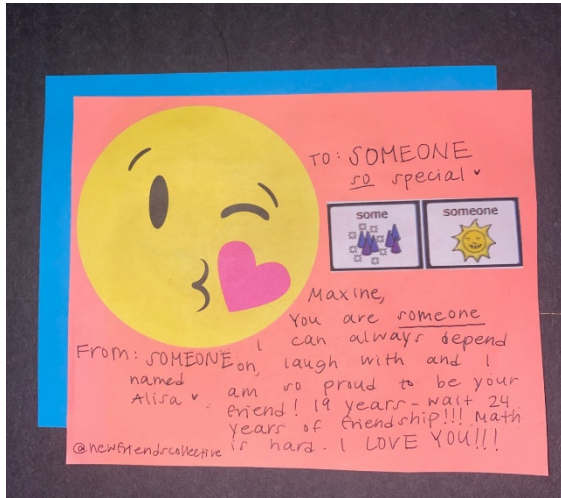 TO: SOMEONE
so special
some
someone
Maxine,
You are someone
I can always depend
on, laugh with and I
am so proud to be your
friend! 19 years - wait 24
years of friendship!!! Math
is hard. I LOVE YOU!!!
From: SOMEONE
named
Alisa
@newfriendscollective